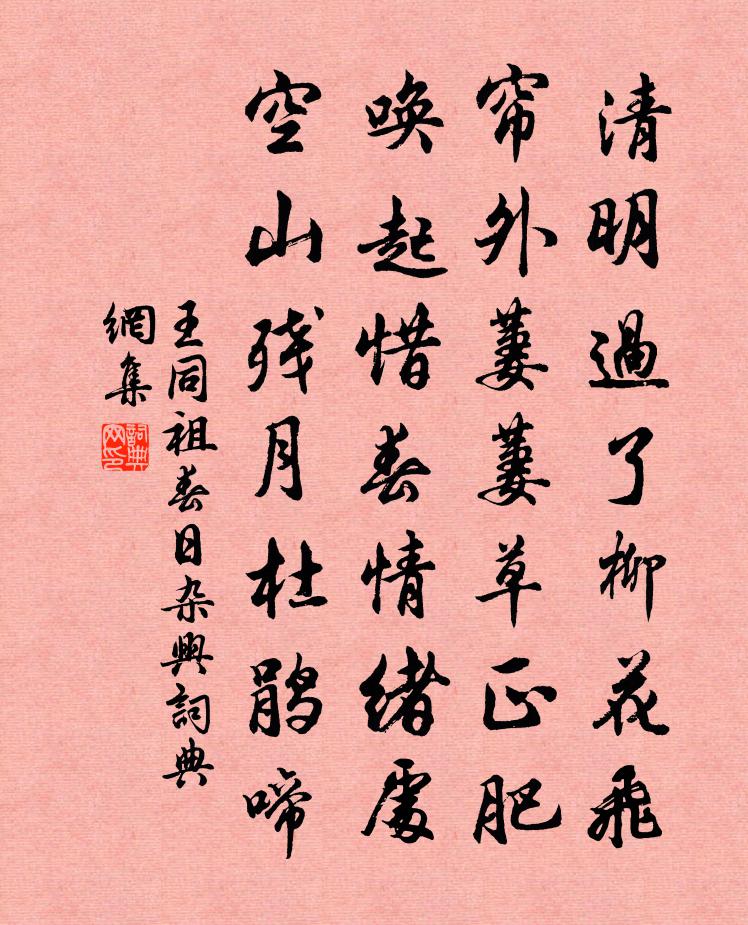 清明過了柳花飛
帘外萋萋草正肥
唤起惜春情緒處
空山残月杜鹃啼
王同祖春日杂興詞典
網集
詞典
网印